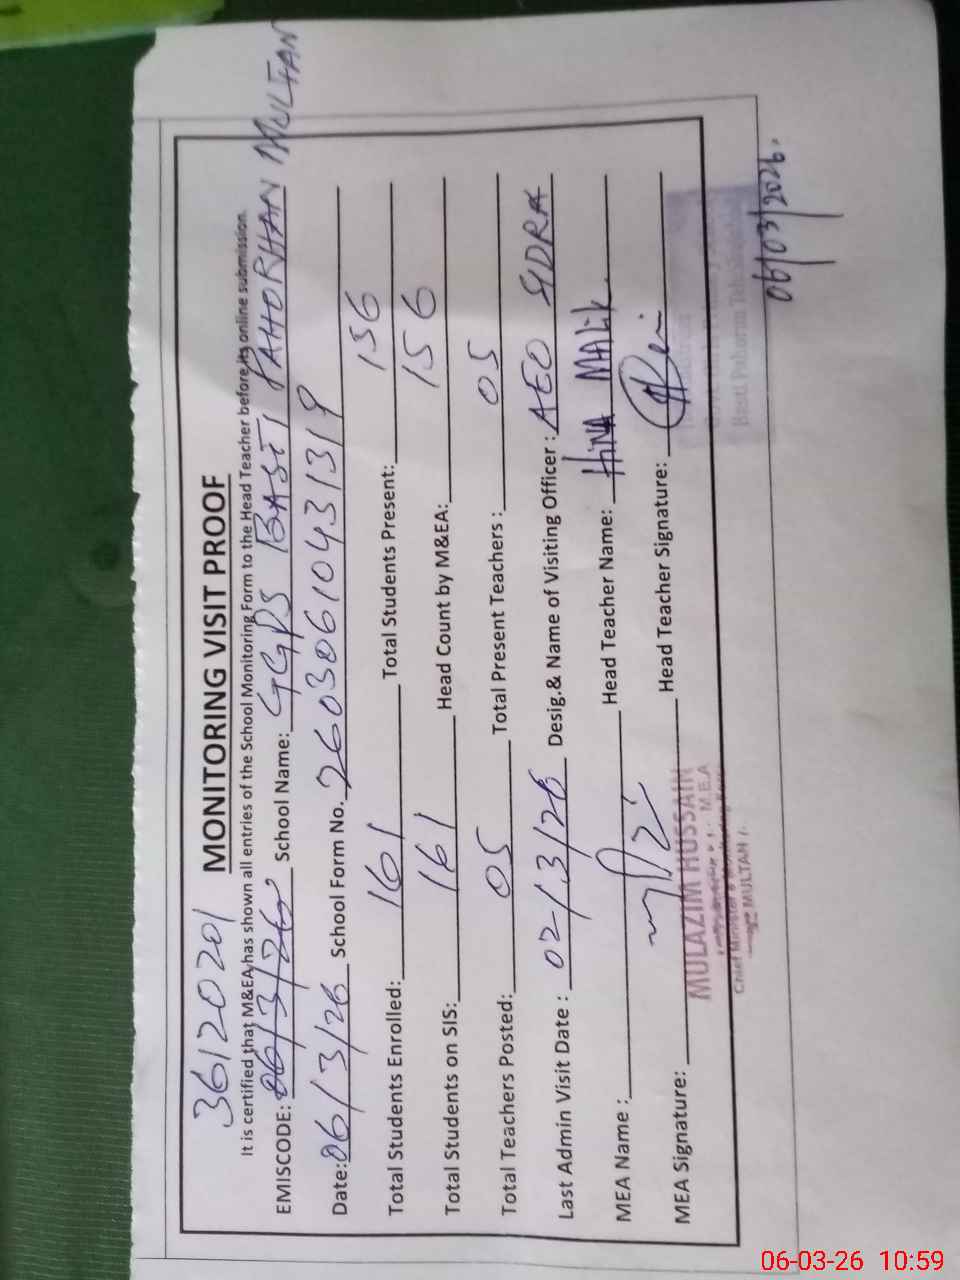 36120201 MONITORING VISIT PROOF
It is certified that M&EA has shown all entries of the School Monitoring Form to the Head Teacher before its online submission.
EMISCODE: 06/3/26 School Name: GGPS BASTI PAHORHAN MULTAN
Date: 06/3/26 School Form No. 2603061043139
Total Students Enrolled: 161 Total Students Present: 156
Total Students on SIS: 161 Head Count by M&EA: 156
Total Teachers Posted: 05 Total Present Teachers : 05
Last Admin Visit Date : 02/3/26 Desig.& Name of Visiting Officer : AEO SIDRA
MEA Name : Head Teacher Name: HiNA MALik
MEA Signature: Head Teacher Signature:
MULAZIM HUSSAIN
M.E.A
Chief Minister's
MULTAN
Basti Pahoran
06/03/2026.
06-03-26 10:59